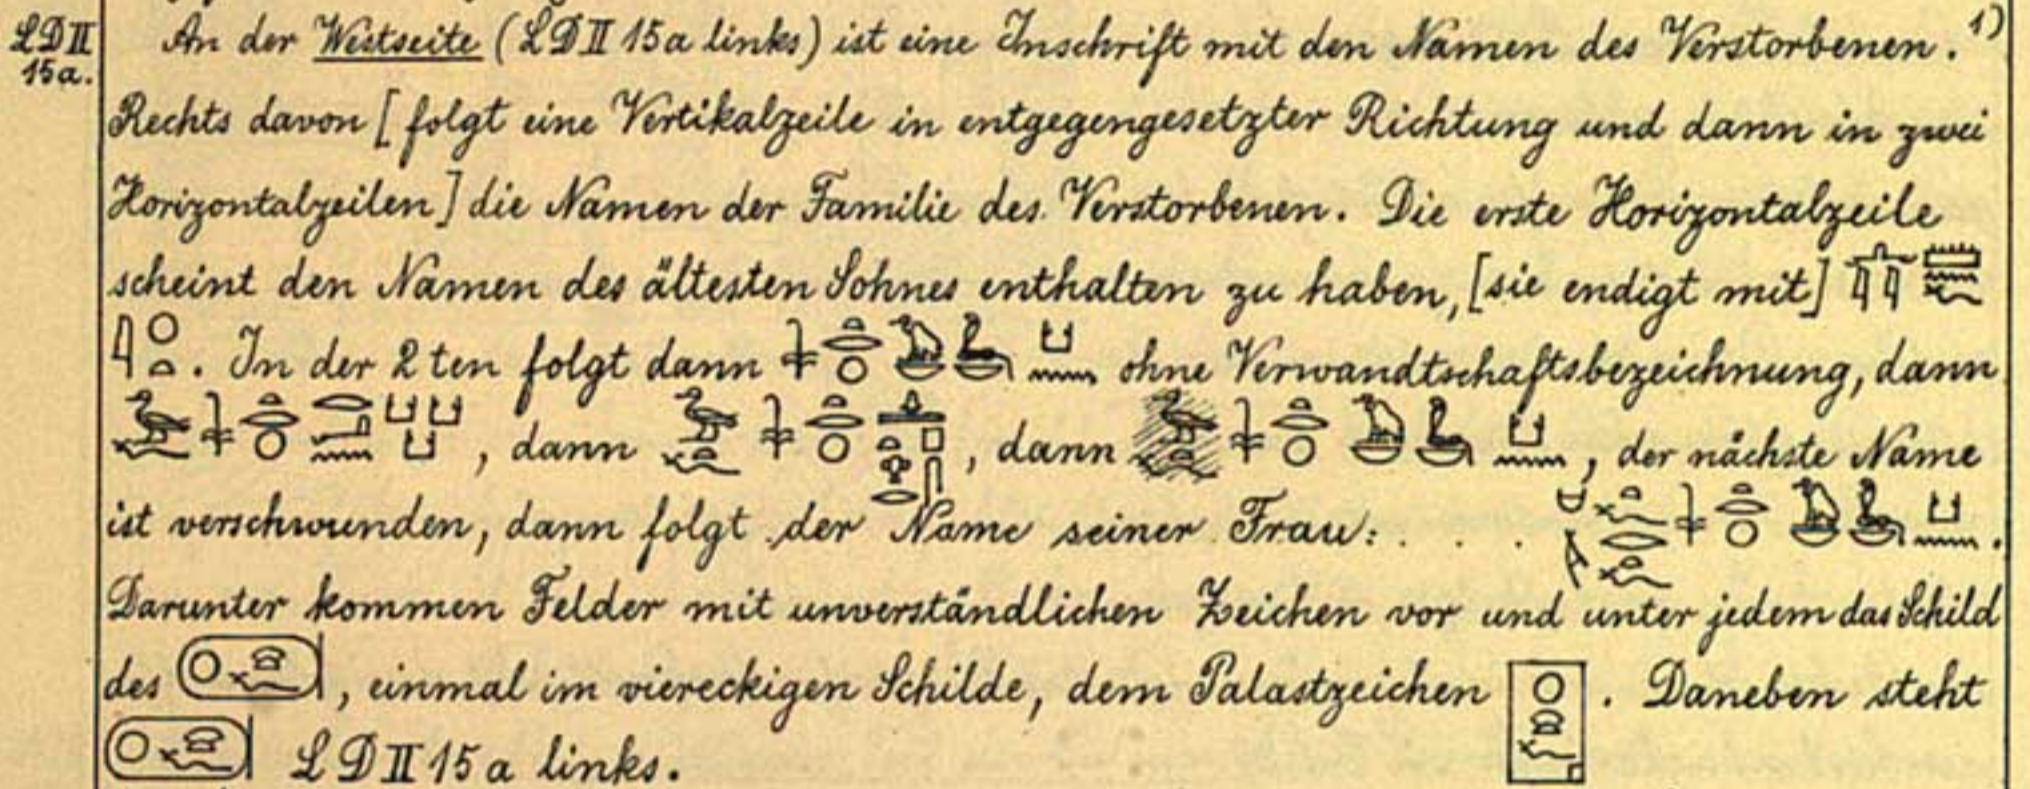 LD II An der Westseite (LD II 15a links) ist eine Inschrift mit den Namen des Verstorbenen. 1)
15a.
Rechts davon [folgt eine Vertikalzeile in entgegengesetzter Richtung und dann in zwei
Horizontalzeilen] die Namen der Familie des Verstorbenen. Die erste Horizontalzeile
scheint den Namen des ältesten Sohnes enthalten zu haben, [sie endigt mit]
. In der 2ten folgt dann ohne Verwandtschaftsbezeichnung, dann
, dann , dann , der nächste Name
ist verschwunden, dann folgt der Name seiner Frau: . . . .
Darunter kommen Felder mit unverständlichen Zeichen vor und unter jedem das Schild
des , einmal im viereckigen Schilde, dem Palastzeichen . Daneben steht
LD II 15a links.